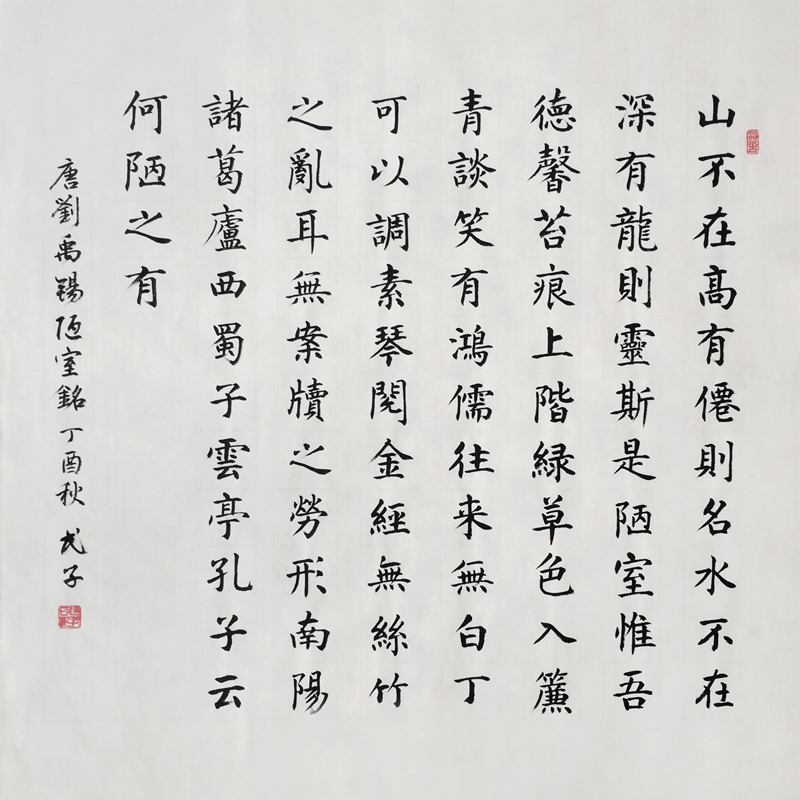 山不在髙有僊則名水不在
深有龍則靈斯是陋室惟吾
徳馨苔痕上階緑草色入簾
青談笑有鴻儒往来無白丁
可以調素琴閱金經無絲竹
之亂耳無案牘之勞形南陽
諸葛廬西蜀子雲亭孔子云
何陋之有
唐劉禹錫陋室銘丁酉秋 子